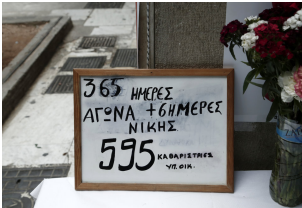 365 ΗΜΕΡΕΣ
ΑΓΩΝΑ + 6 ΗΜΕΡΕΣ
ΝΙΚΗΣ
595 ΚΑΘΑΡΙΣΤΡΙΕΣ
ΥΠ. ΟΙΚ.